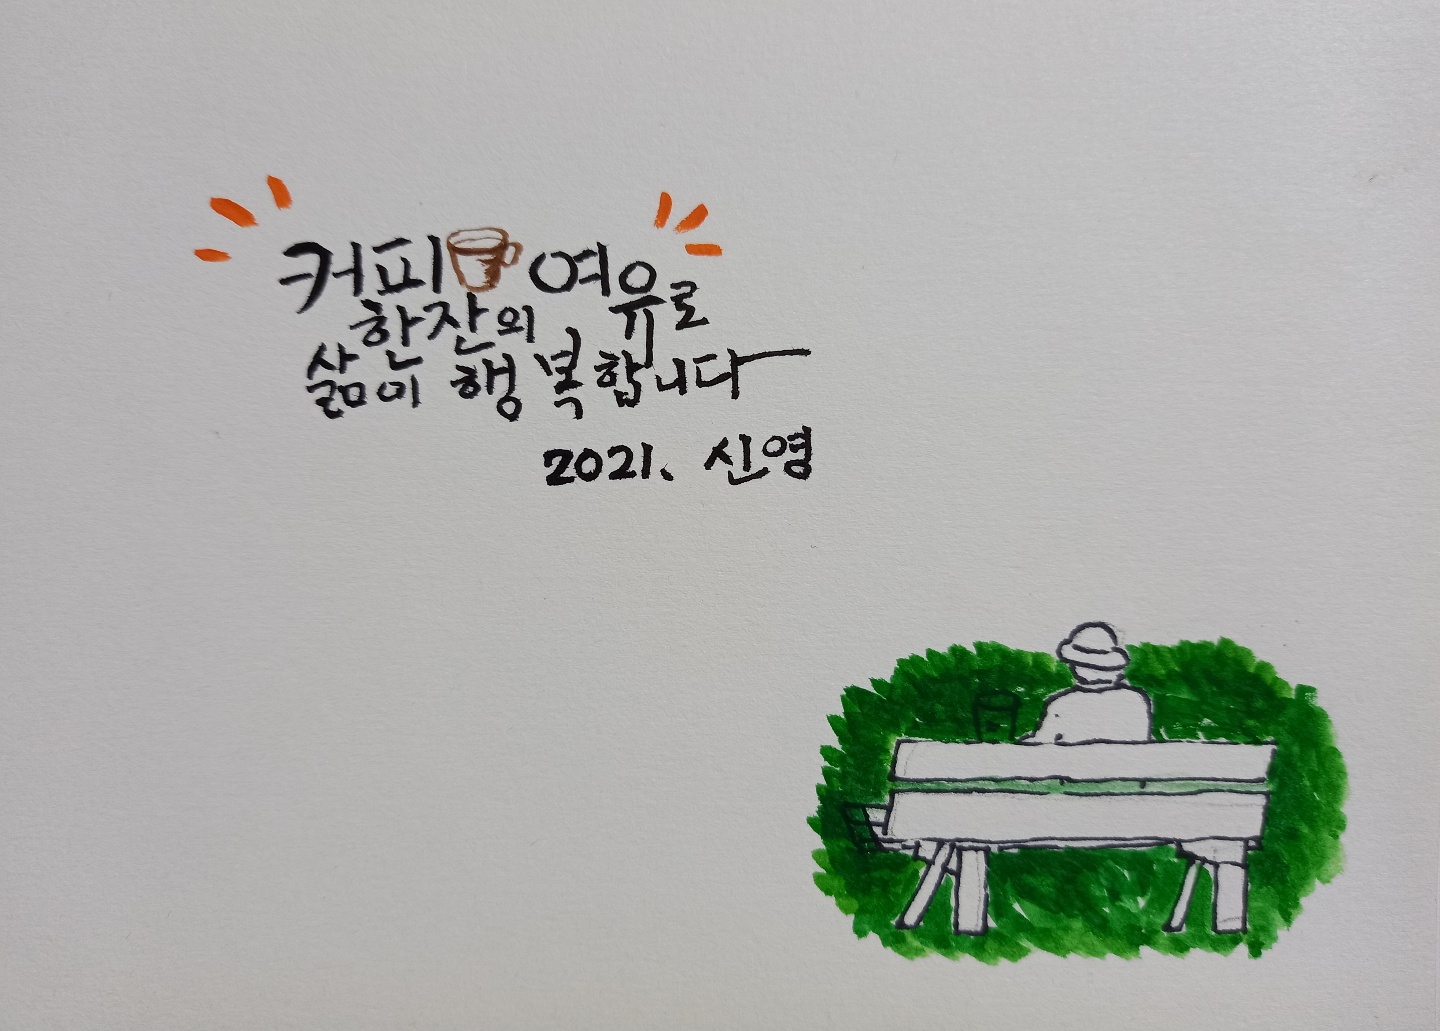 커피 여유로
한잔의
삶이 행복합니다
2021. 신영